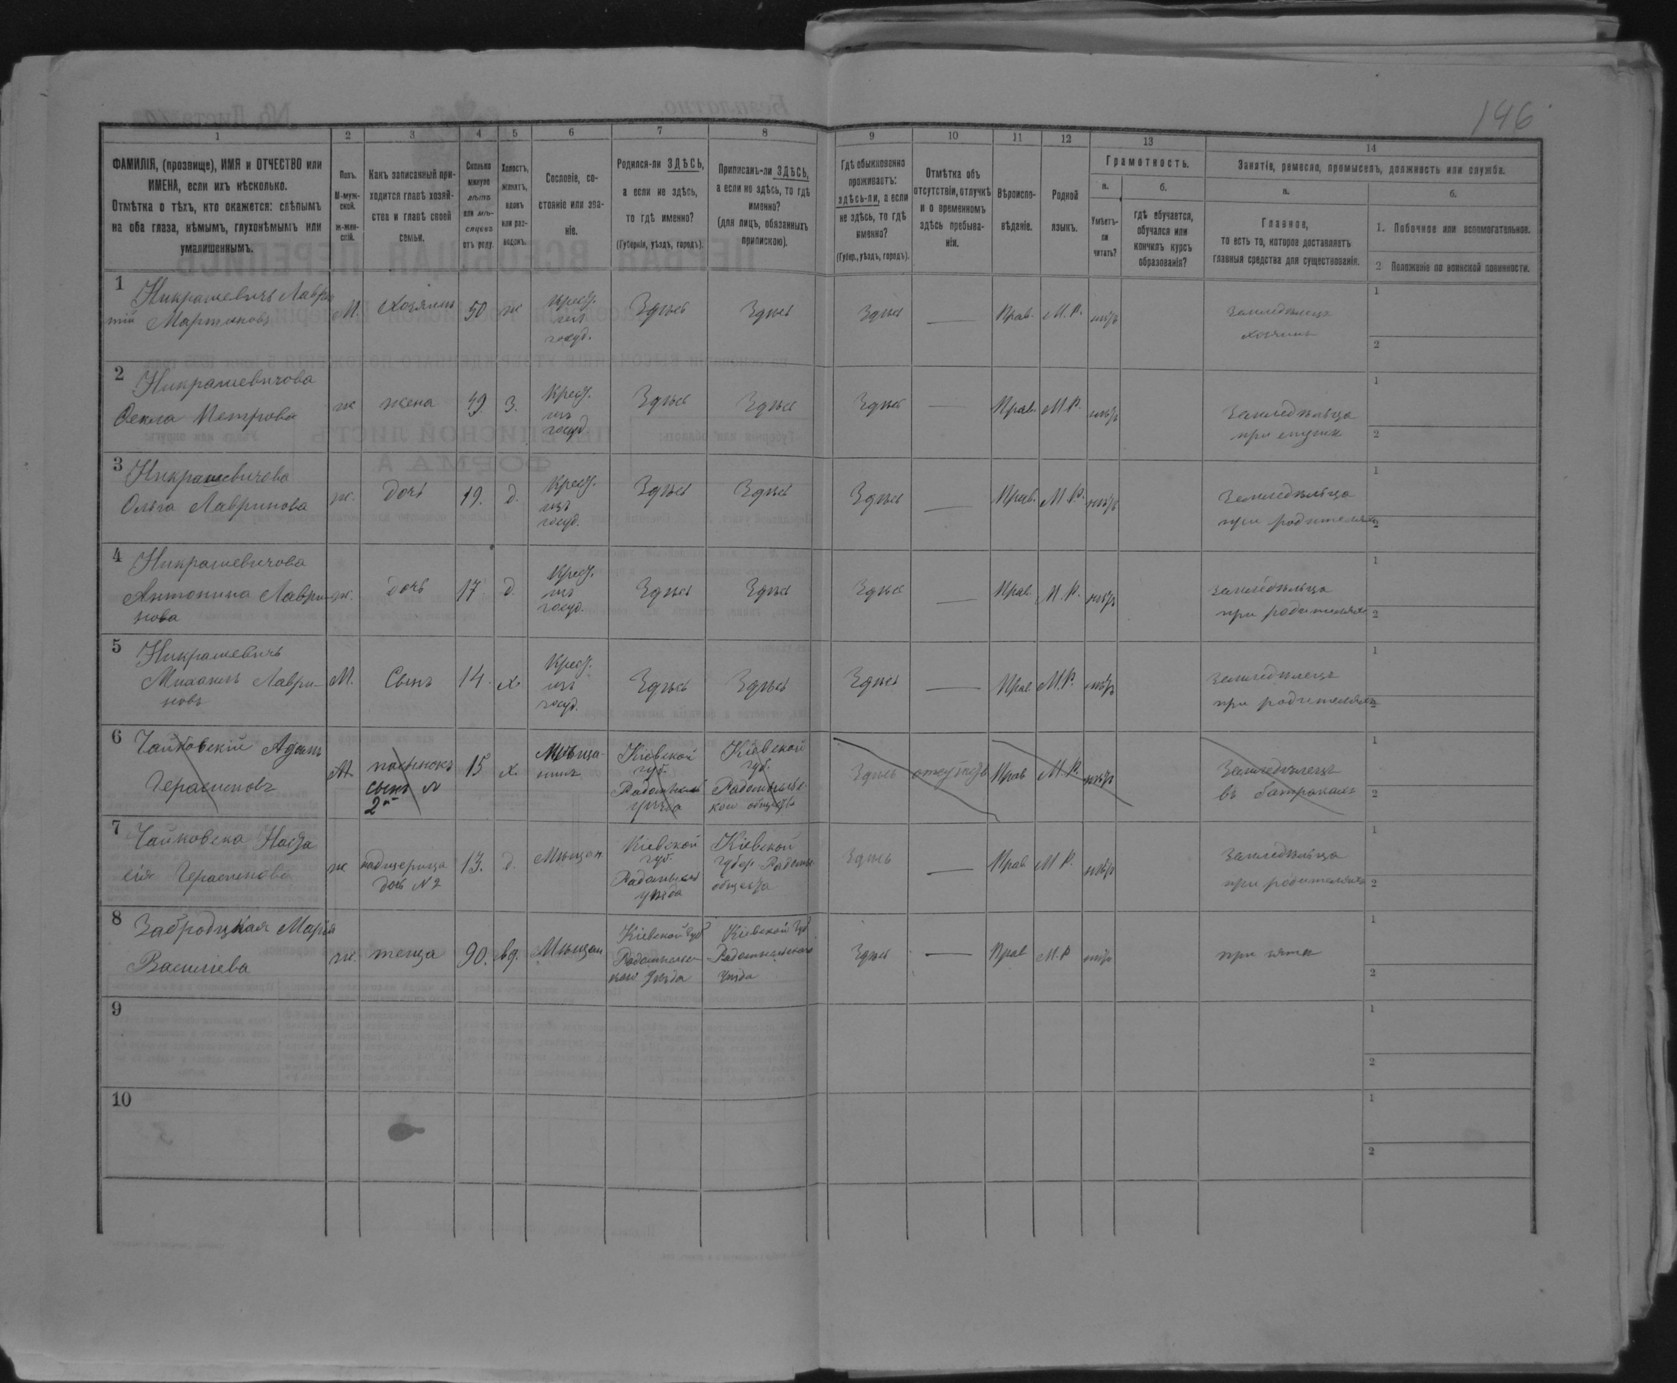 146
1
2
3
4
5
6
7
8
9
10
11
12
13
14
ФАМИЛІЯ, (прозвище), ИМЯ и ОТЧЕСТВО или
ИМЕНА, если ихъ нѣсколько.
Отмѣтка о тѣхъ, кто окажется: слѣпымъ
на оба глаза, нѣмымъ, глухонѣмымъ или
умалишеннымъ.
Полъ.
М-муж-
ской.
ж-жен-
скій.
Какъ записанный при-
ходится главѣ хозяй-
ства и главѣ своей
семьи.
Сколько
минуло
лѣтъ
или мѣ-
сяцевъ
отъ роду.
Холостъ,
женатъ,
вдовъ
или раз-
веденъ.
Сословіе, со-
стояніе или зва-
ніе.
Родился-ли ЗДѢСЬ,
а если не здѣсь,
то гдѣ именно?
(Губернія, уѣздъ, городъ).
Приписанъ-ли ЗДѢСЬ,
а если не здѣсь, то гдѣ
именно?
(для лицъ, обязанныхъ
припискою).
Гдѣ обыкновенно
проживаетъ:
здѣсь-ли, а если
не здѣсь, то гдѣ
именно?
(Губер., уѣздъ, городъ).
Отмѣтка объ
отсутствіи, отлучкѣ
и о временномъ
здѣсь пребыва-
ніи.
Вѣроиспо-
вѣданіе.
Родной
языкъ.
Грамотность.
а.
Умѣетъ-
ли
читать?
б.
гдѣ обучается,
обучался или
кончилъ курсъ
образованія?
Занятіе, ремесло, промыселъ, должность или служба.
а.
Главное,
то есть то, которое доставляетъ
главныя средства для существованія.
б.
1. Побочное или вспомогательное.
2 Положеніе по воинской повинности.
1
Никрашевичъ Лаврен
тій Мартиновъ
М.
Хозяинъ
50
ж
крест.
изъ
госуд.
Здѣсь
Здѣсь
Здѣсь
Прав.
М.Р.
нѣтъ
земледѣлецъ
хозяинъ
1
2
2
Никрашевичова
Фекла Петрова
ж
жена
49
з.
Крест.
изъ
госуд
Здѣсь
Здѣсь
Здѣсь
Прав.
М.Р.
нѣтъ
Земледѣлица
при мужи
1
2
3
Никрашевичова
Ольга Лавринова
ж.
дочь
19.
д.
Крест.
изъ
госуд.
Здѣсь
Здѣсь
Здѣсь
Прав.
М.Р.
нѣтъ
Земледѣлица
при родителяхъ
1
2
4
Никрашевичова
Антонина Лаври-
нова
ж.
дочь
17
д.
Крест.
изъ
госуд.
Здѣсь
Здѣсь
Здѣсь
Прав.
М.Р.
нѣтъ
земледѣлица
при родителяхъ
1
2
5
Никрашевичъ
Михаилъ Лаври-
новъ
М.
Сынъ
14.
х
Крест.
изъ
госуд.
Здѣсь
Здѣсь
Здѣсь
Прав
М.Р.
нѣтъ
земледѣлецъ
при родителяхъ
1
2
6
Чайковскій Адамъ
Герасимовъ
М.
пасынокъ
сынъ №
2й
15
х.
Мѣща-
нинъ
Кіевской
губ.
Радомысл
уѣзда
Кіевской
губ.
Радомысльс-
ком общест
Здѣсь
отсутств
Прав
М.Р.
нѣтъ
Земледѣлецъ
въ батракахъ
1
2
7
Чайковска Наста
сія Герасимова
ж
падщерица
дочь №2
13.
д.
Мѣщан
Кіевской
губ.
Радомысл
уѣзда
Кіевской
губер Радомы
общества
Здѣсь
Прав
М.Р.
нѣтъ
Земледѣлица
при родителяхъ
1
2
8
Забродцкая Марія
Васильева
ж
теща
90.
вд.
Мѣщан
Кіевской губ
Радомысльс-
каго Уѣзда
Кіевской Губ
Радомысльскаго
Уѣзда
Здѣсь
Прав
М.Р
нѣтъ
при зяти
1
2
9
1
2
10
1
2